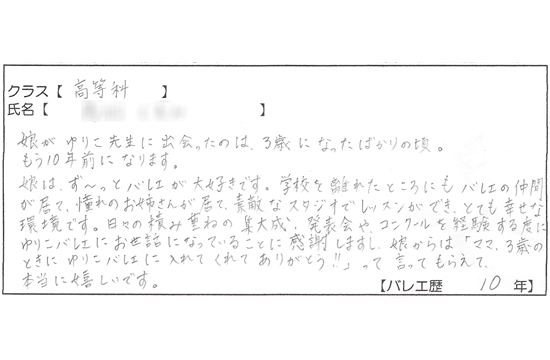 クラス【 高等科 】
氏名【 】
娘が ゆりこ先生に出会ったのは、3歳になったばかりの頃。
もう10年前になります。
娘は、ず〜っとバレエが大好きです。学校を離れたところにもバレエの仲間
が居て、憧れのお姉さんが居て、素敵なスタジオでレッスンができ、とても幸せな
環境です。日々の積み重ねの集大成、発表会や、コンクールを経験する度に
ゆりこバレエにお世話になっていることに感謝しますし、娘からは「ママ、3歳の
ときにゆりこバレエに入れてくれてありがとう!!」って言ってもらえて、
本当に嬉しいです。
【バレエ歴 10 年】